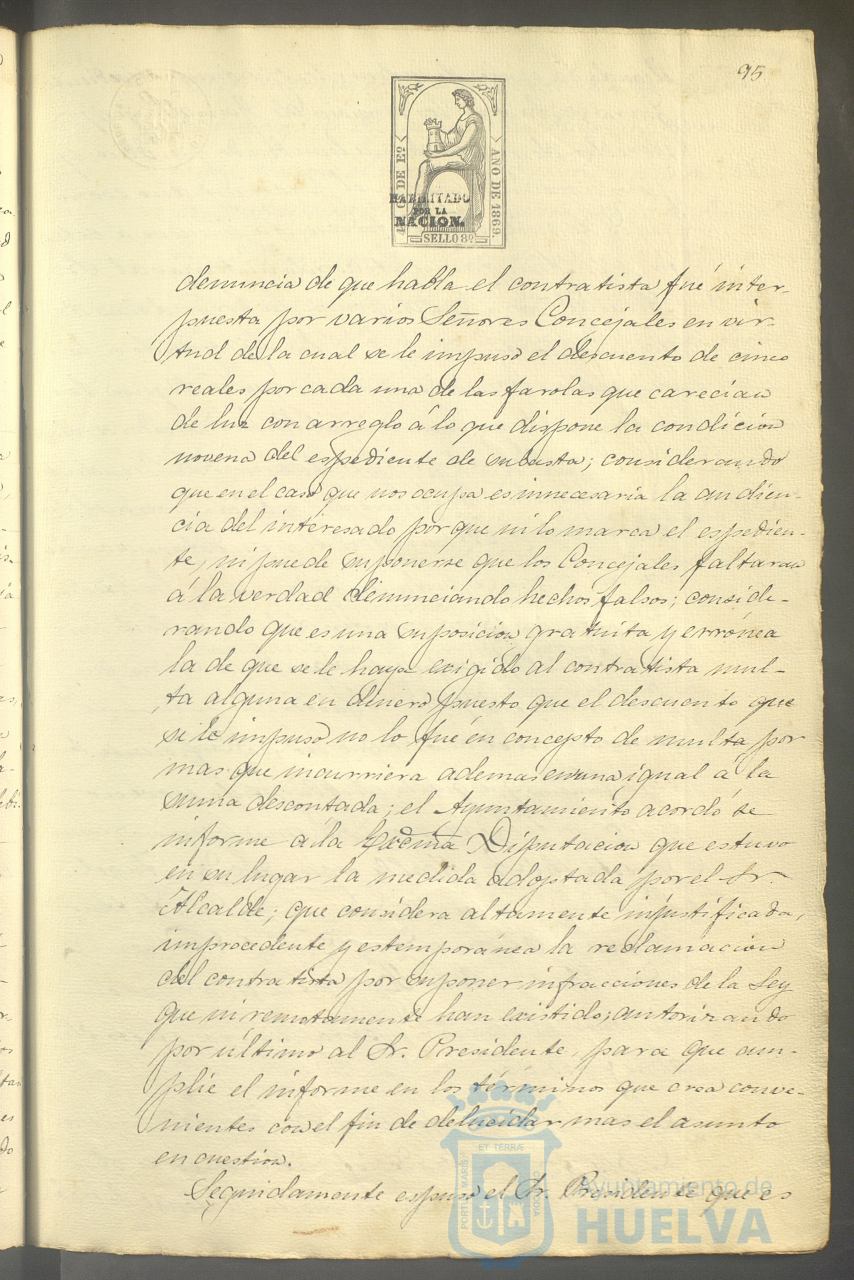 95
40 Cs DE Eo
AÑO DE 1869.
HABILITADO
POR LA
NACION.
SELLO 8º
denuncia de que habla el contratista fué inter-
puesta por varios Señores Concejales en vir-
tud de la cual se le impuso el descuento de cinco
reales por cada una de las farolas que carecian
de luz con arreglo á lo que dispone la condicion
novena del espediente de subasta; considerando
que en el caso que nos ocupa es innecesaria la audien-
cia del interesado porque ni lo marca el espedien-
te, ni puede suponerse que los Concejales faltaran
á la verdad denunciando hechos falsos; conside-
rando que es una suposicion gratuita y errónea
la de que se le haya exigido al contratista mul-
ta alguna en dinero puesto que el descuento que
se le impuso no lo fué en concepto de multa por
mas que incurriera ademas en una igual á la
suma descontada; el Ayuntamiento acordó se
informe á la Excma Diputacion que estuvo
en su lugar la medida adoptada por el Sr.
Alcalde; que considera altamente injustificada,
improcedente y estemporánea la reclamacion
del contratista por suponer infracciones de la Ley
que ni remotamente han existido; autorizando
por último al Sr. Presidente, para que am-
plie el informe en los términos que crea conve-
nientes con el fin de delucidar mas el asunto
en cuestion.
Seguidamente espuso el Sr. Presidente que es
PORTUS MARIS
ET TERRÆ
CUSTODIA
Ayuntamiento de
HUELVA